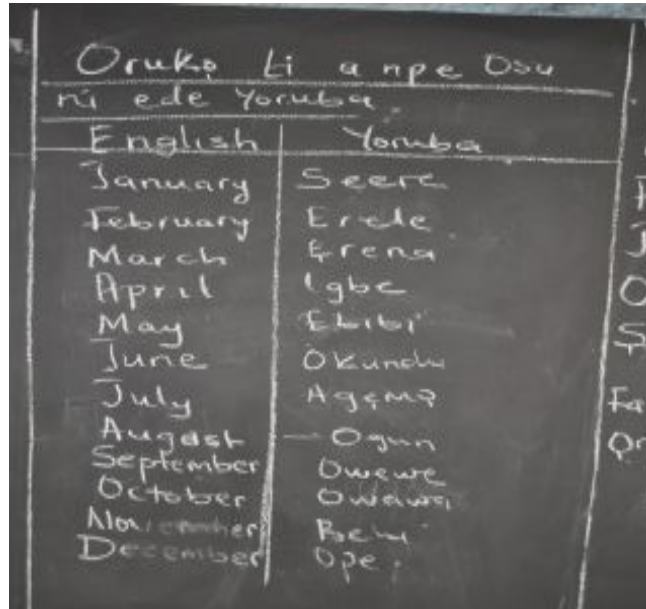 Orukọ ti a npe Osu
ni ede Yoruba
English Yoruba
January Seere
February Erele
March Ẹrena
April Igbe
May Ebibi
June Okundu
July Agẹmọ
August Ogun
September Owewe
October Owawa
November Belu
December Ope